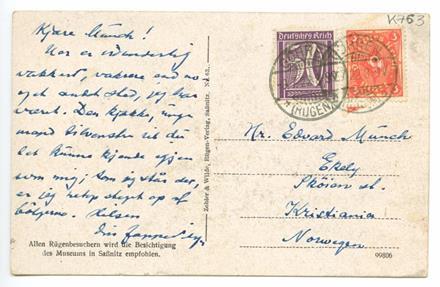 K763
Kjære Munch!
Her er vidunderlig
vakkert, vakrere end no-
get andet sted, jeg har
vært. Den kjække, unge
mand
let kunne kjende igjen
som mig; som
er jeg netop steget op af
bølgerne. Hilsen
Din
Allen Rügenbesuchern wird die Besichtigung
des Museums in Saßnitz empfohlen.
Zobler & Wilde, Rügen-Verlag, Saßnitz. Nr. 62.
Deutsches Reich
(RÜGEN)
Hr. Edvard Munch
Ekely
Skøien st.
Kristiania
Norwegen
99806